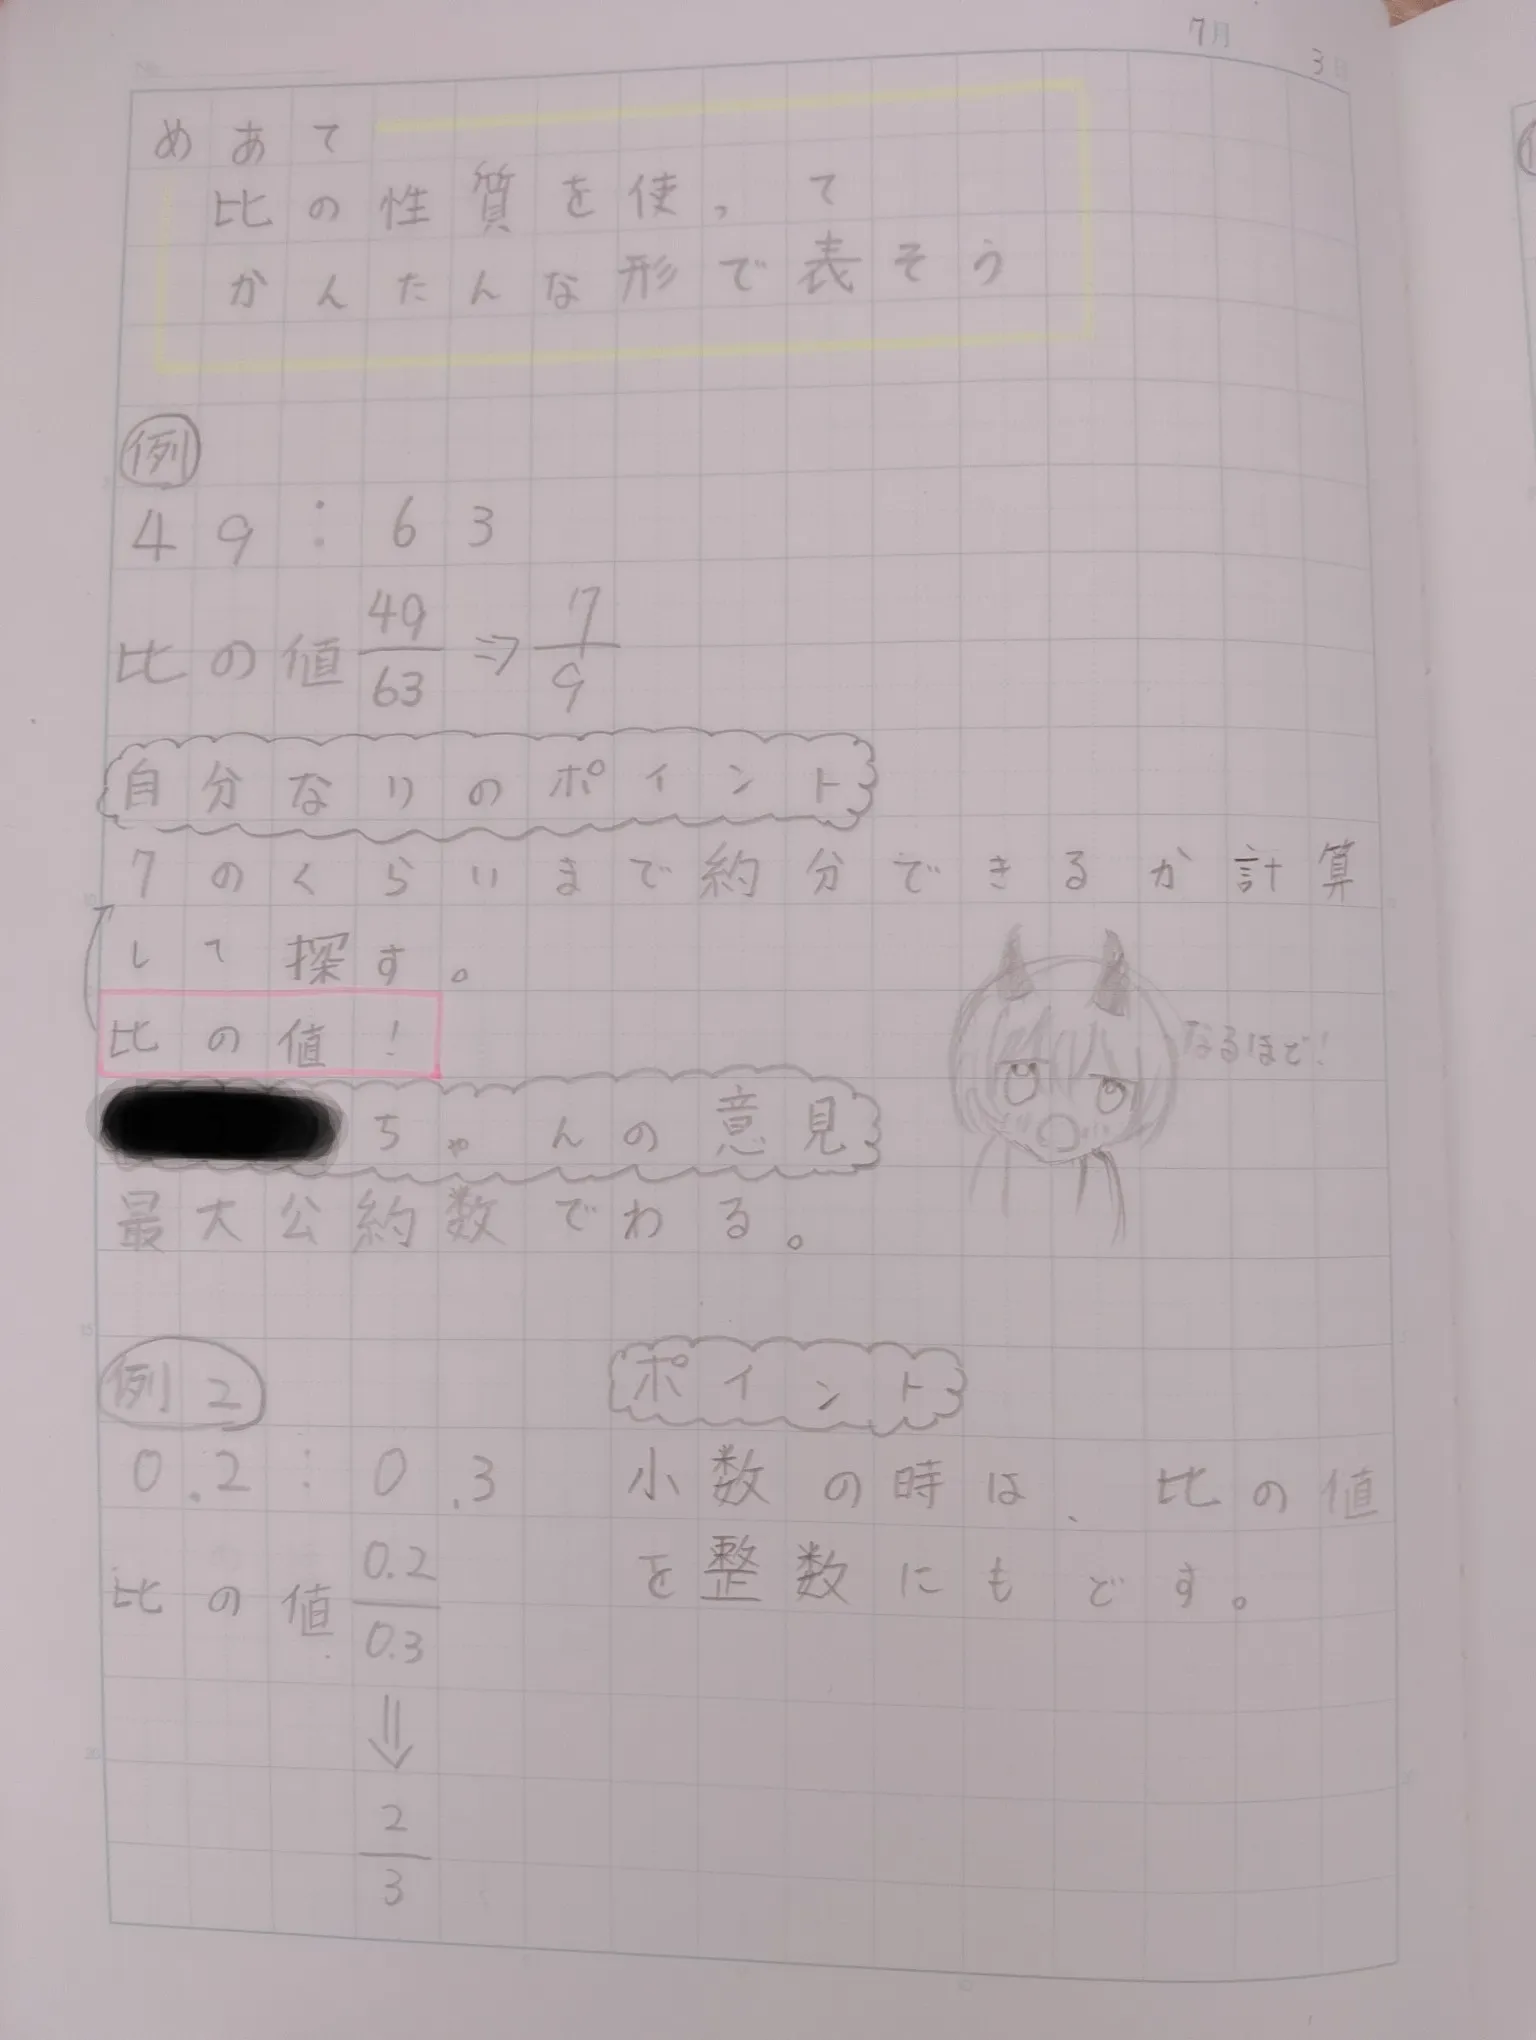 7月 3日
めあて
比の性質を使って
かんたんな形で表そう
例
49:63
比の値 49/63 ⇒ 7/9
自分なりのポイント
7のくらいまで約分できるか計算
して探す。
比の値!
なるほど!
ちゃんの意見
最大公約数でわる。
例2
0.2:0.3
比の値 0.2/0.3
⇓
2/3
ポイント
小数の時は、比の値
を整数にもどす。